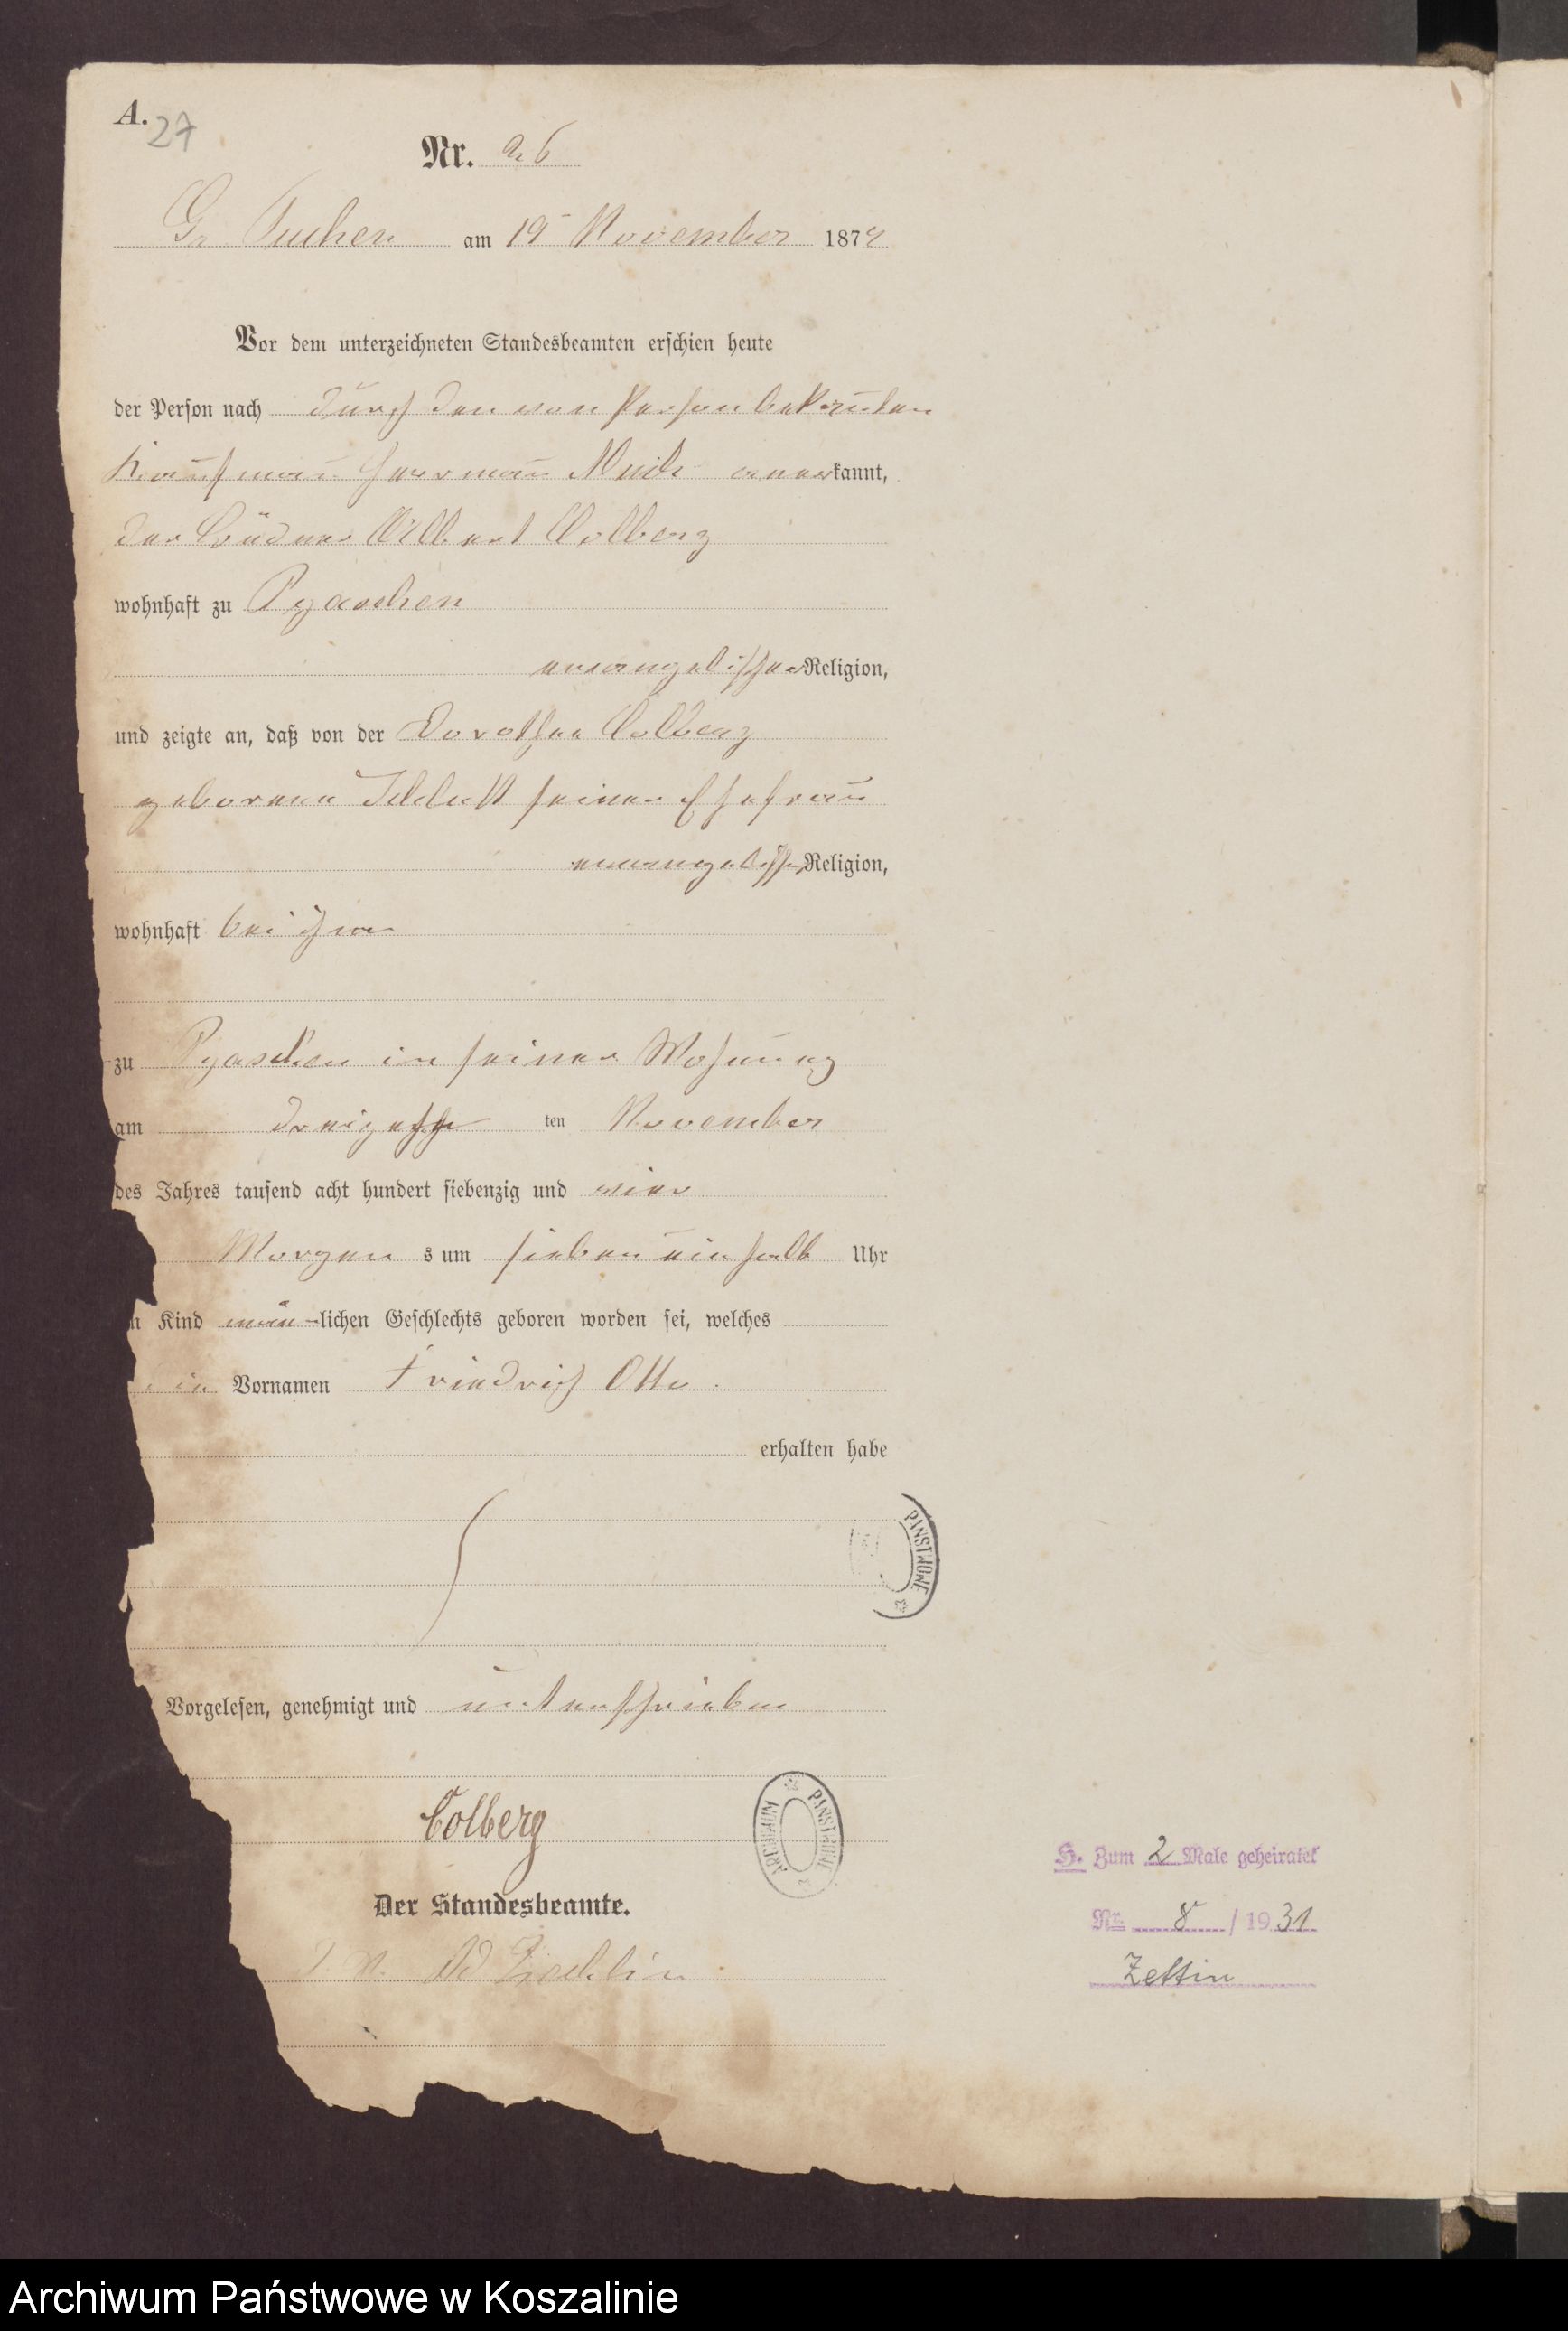 A.
27
Nr. 26
Gr Tuchen am 19 November 1874
Vor dem unterzeichneten Standesbeamten erschien heute
der Person nach durch den von Person bekannten
Kaufmann Herrmann anerkannt,
der Büdner Albert Colberg
wohnhaft zu Pyaschen
evangelischer Religion,
und zeigte an, daß von der Dorothea Colberg
geborene seiner Ehefrau
evangelischer Religion,
wohnhaft bei ihm
zu Pyaschen in seiner Wohnung
am dreizehn ten November
des Jahres tausend acht hundert siebenzig und vier
Morgen s um sieben ein halb Uhr
n Kind männlichen Geschlechts geboren worden sei, welches
Vornamen Friedrich Otto.
erhalten habe
PAŃSTWOWE
Vorgelesen, genehmigt und unterschrieben
Colberg
ARCHIWUM PAŃSTWOWE
Der Standesbeamte.
H. Zum 2 Male geheiratet
Nr. 8 / 1931
Zettin
Archiwum Państwowe w Koszalinie